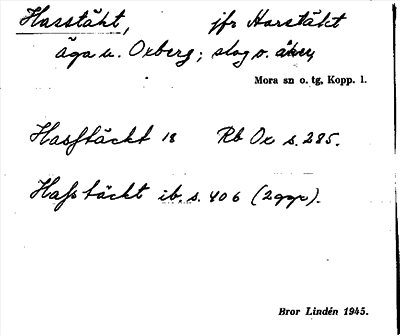 Hasstäkt, jfr Harstäkt
äga u. Oxberg; slog o. åker,
Mora sn o. tg, Kopp. l.
Hasstäckt 18 Rb Ox s. 285.
Hasstäckt ib. s. 406 (2ggr).
Bror Lindén 1945.